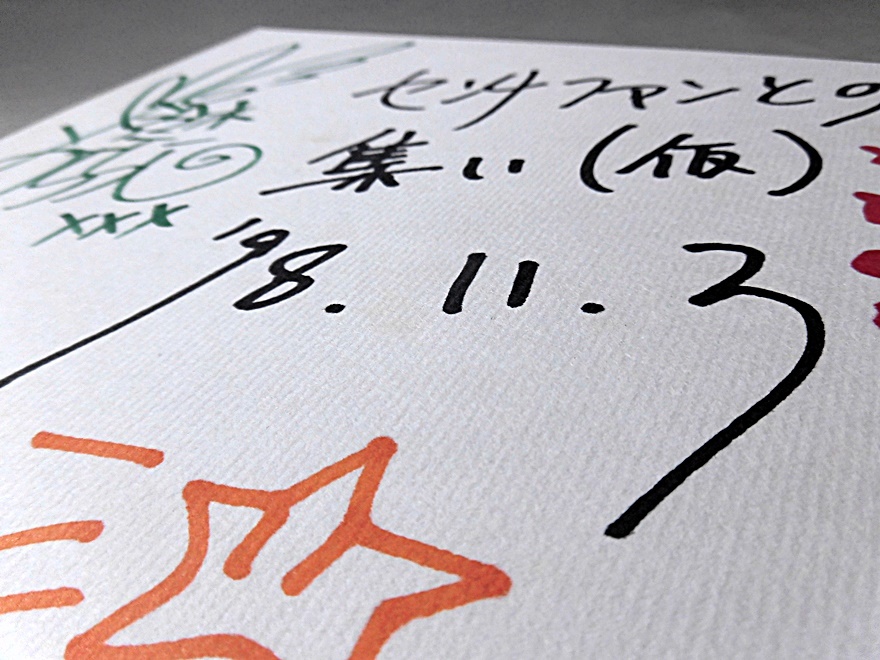 センチファンとの
集い(仮)
'98.11.3
xxx